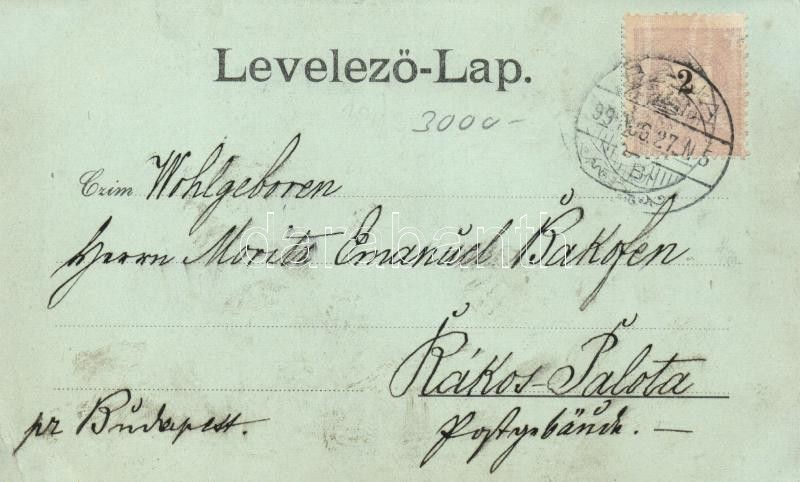 Levelező-Lap.
2
3000-
99 AUG 27. N 5
Czim Wohlgeboren
Herrn Moritz Emanuel Bakofen
darabanth
Rákos-Palota
pr Budapest.
Postgebäude. —